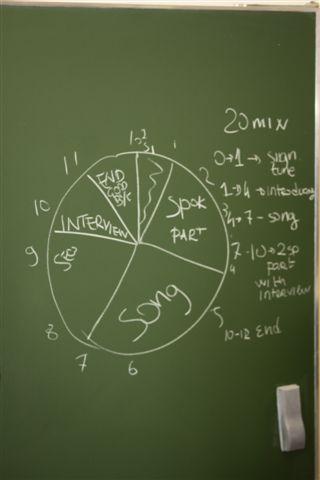 20 min
0→1 → sign
tune
1→4 →
4→7 - song
7-10→2 sp
part
with
interview
10-12 END
12
1
2
3
4
5
6
7
8
9
10
11
SPOK
PART
SONG
INTERVIEW
END
GOOD
BYE